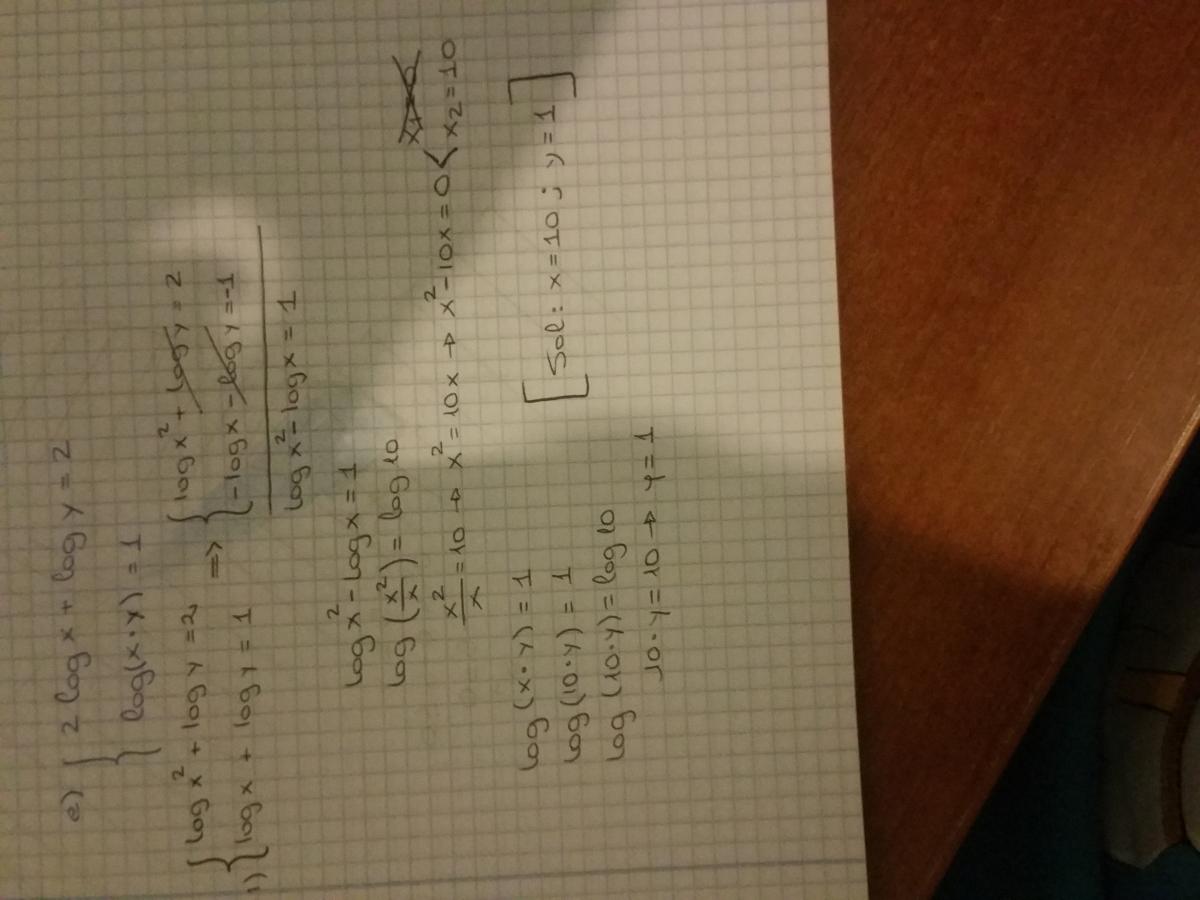 e) { 2 log x + log y = 2
log(x·y) = 1
{ log x² + log y = 2
1) { log x + log y = 1
=> { log x² + log y = 2
{ -log x - log y = -1
log x² - log x = 1
log x² - log x = 1
log (x²/x) = log 10
x²/x = 10 → x² = 10x → x² - 10x = 0 < x₁ = 0
x₂ = 10
log (x·y) = 1
log (10·y) = 1
log (10·y) = log 10
10·y = 10 → y = 1
[Sol: x = 10; y = 1]